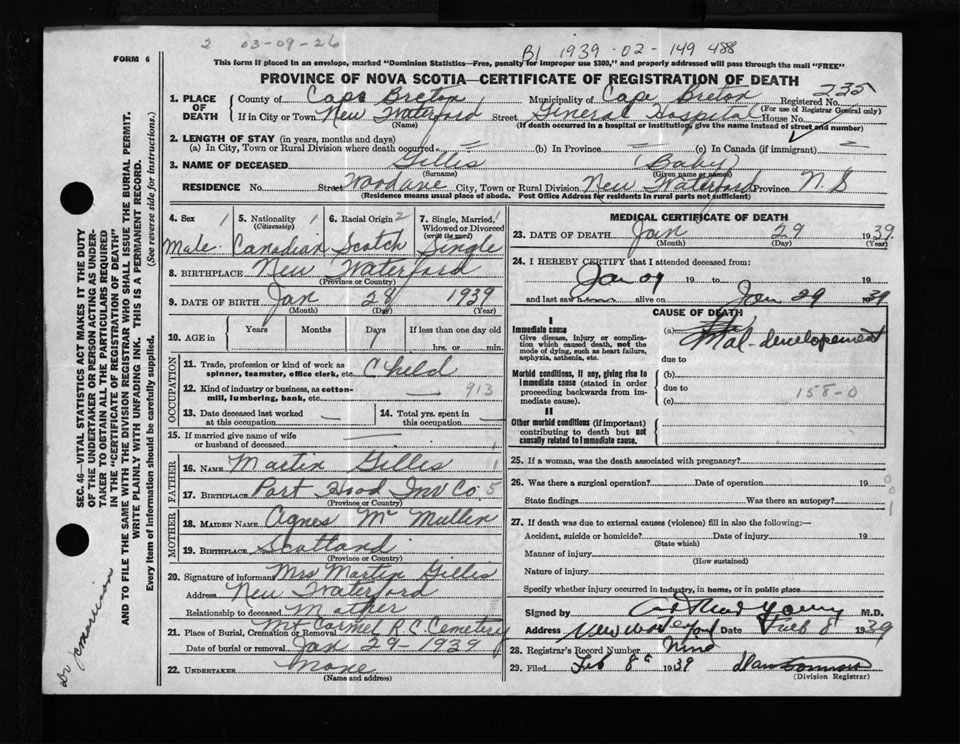 2 03-09-26
B1 1939-02-149 488
FORM 6
This form if placed in an envelope, marked "Dominion Statistics—Free, penalty for improper use $300," and properly addressed will pass through the mail "FREE"
PROVINCE OF NOVA SCOTIA—CERTIFICATE OF REGISTRATION OF DEATH
235
1. PLACE OF DEATH
County of Cape Breton Municipality of Cape Breton Registered No.
(For use of Registrar General only)
If in City or Town New Waterford Street General Hospital House No.
(Name) (If death occurred in a hospital or institution, give the name instead of street and number)
2. LENGTH OF STAY (in years, months and days)
(a) In City, Town or Rural Division where death occurred (b) In Province (c) In Canada (if immigrant)
3. NAME OF DECEASED Gillis (Baby)
(Surname) (Given name or names)
RESIDENCE No. Street Wood ave City, Town or Rural Division New Waterford Province N.S
(Residence means usual place of abode. Post Office Address for residents in rural parts not sufficient)
4. Sex 1 5. Nationality 1 6. Racial Origin 2 7. Single, Married, 1
(Citizenship) Widowed or Divorced
(write the word)
Male. Canadian Scotch Single
8. BIRTHPLACE New Waterford
(Province or Country)
9. DATE OF BIRTH Jan 28 1939
(Month) (Day) (Year)
10. AGE in Years Months Days If less than one day old
1 hrs. or min.
OCCUPATION
11. Trade, profession or kind of work as Child
spinner, teamster, office clerk, etc.
12. Kind of industry or business, as cotton- — 913
mill, lumbering, bank, etc.
13. Date deceased last worked — 14. Total yrs. spent in —
at this occupation. this occupation.
15. If married give name of wife —
or husband of deceased
FATHER
16. NAME Martin Gillis 1
17. BIRTHPLACE Port Hood Inv Co. 5
(Province or Country)
MOTHER
18. MAIDEN NAME Agnes McMullin
19. BIRTHPLACE Scotland
(Province or Country)
20. Signature of informant Mrs Martin Gillis
Address New Waterford
Relationship to deceased Mother
21. Place of Burial, Cremation or Removal Mt Carmel R C Cemetery
Date of burial or removal Jan 29 - 1939
22. UNDERTAKER None
(Name and address)
MEDICAL CERTIFICATE OF DEATH
23. DATE OF DEATH Jan 29 1939
(Month) (Day) (Year)
24. I HEREBY CERTIFY that I attended deceased from:
Jan 19 to 19
and last saw alive on Jan 29 1939
CAUSE OF DEATH
I
Immediate cause (a) Mal-developement
Give disease, injury or complication which caused death, not the mode of dying, such as heart failure, asphyxia, asthenia, etc.
due to
Morbid conditions, if any, giving rise to immediate cause (stated in order proceeding backwards from immediate cause). (b)
due to 158-0
(c)
II
Other morbid conditions (if important) contributing to death but not causally related to immediate cause.
25. If a woman, was the death associated with pregnancy?
26. Was there a surgical operation? Date of operation 19 0
State findings Was there an autopsy? 0 1
27. If death was due to external causes (violence) fill in also the following:—
Accident, suicide or homicide? Date of injury 19
(State which)
Manner of injury
(How sustained)
Nature of injury
Specify whether injury occurred in industry, in home, or in public place
Signed by M.D.
Address New Waterford Date Feb 8 1939
28. Registrar's Record Number Nine
29. Filed Feb 8 1939
(Division Registrar)
SEC. 46—VITAL STATISTICS ACT MAKES IT THE DUTY
OF THE UNDERTAKER OR PERSON ACTING AS UNDER-
TAKER TO OBTAIN ALL THE PARTICULARS REQUIRED
IN THE "CERTIFICATE OF REGISTRATION OF DEATH"
AND TO FILE THE SAME WITH THE DIVISION REGISTRAR WHO SHALL ISSUE THE BURIAL PERMIT.
WRITE PLAINLY WITH UNFADING INK. THIS IS A PERMANENT RECORD.
Every item of information should be carefully supplied. (See reverse side for instructions.)